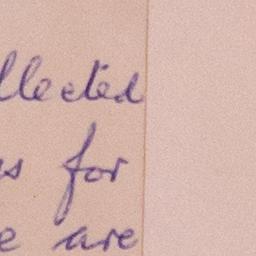 llected
s for
e are